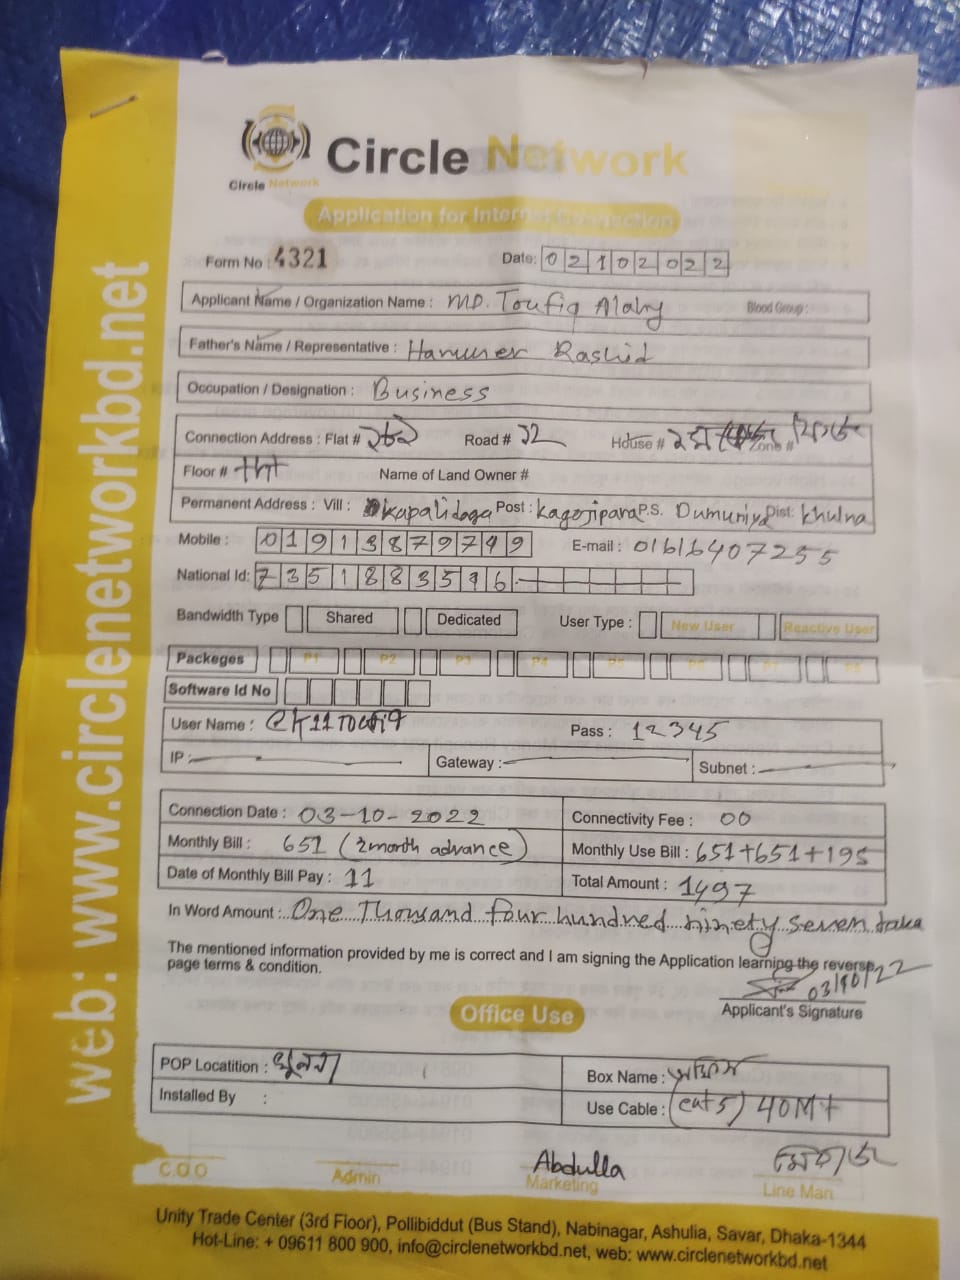 Circle Network
Circle Network
Application for Internet Connection
Form No : 4321 Date: 02102022
Applicant Name / Organization Name : MD. Toufiq Blood Group :
Father's Name / Representative : Rashid
Occupation / Designation : Business
Connection Address : Flat # Road # 32 House # Zone #
Floor # Name of Land Owner #
Permanent Address : Vill : Kapalidoga Post : Kagojipara P.S. Dumuniya Dist: Khulna
Mobile : 01913879749 E-mail : 01616407255
National Id: 7351883596
Bandwidth Type Shared Dedicated User Type : New User Reactive User
Packeges P1 P2 P3 P4 P5 P6 P7 P8
Software Id No
User Name : Pass : 12345
IP : Gateway : Subnet :
Connection Date : 03-10-2022 Connectivity Fee : 00
Monthly Bill : 651 (2 month advance) Monthly Use Bill : 651+651+195
Date of Monthly Bill Pay : 11 Total Amount : 1497
In Word Amount : One Thousand four hundred ninety seven taka
The mentioned information provided by me is correct and I am signing the Application learning the reverse
page terms & condition.
03/10/22
Applicant's Signature
Office Use
POP Locatition : খুলনা Box Name :
Installed By : Use Cable : (cat 5) 40M+
Abdulla
C.O.O Admin Marketing Line Man
Unity Trade Center (3rd Floor), Pollibiddut (Bus Stand), Nabinagar, Ashulia, Savar, Dhaka-1344
Hot-Line: + 09611 800 900, info@circlenetworkbd.net, web: www.circlenetworkbd.net
web: www.circlenetworkbd.net